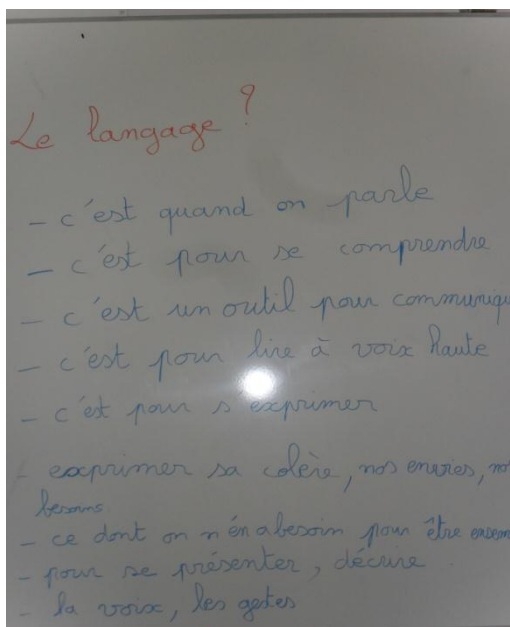 Le langage ?
- c'est quand on parle
- c'est pour se comprendre
- c'est un outil pour communiqu
- c'est pour lire à voix haute
- c'ét pour s'exprimer
- exprimer sa colère, nos envies, no
besoins.
- ce dont on n'én a besoin pour être ensem
- pour se présenter, décrire
- la voix, les gestes